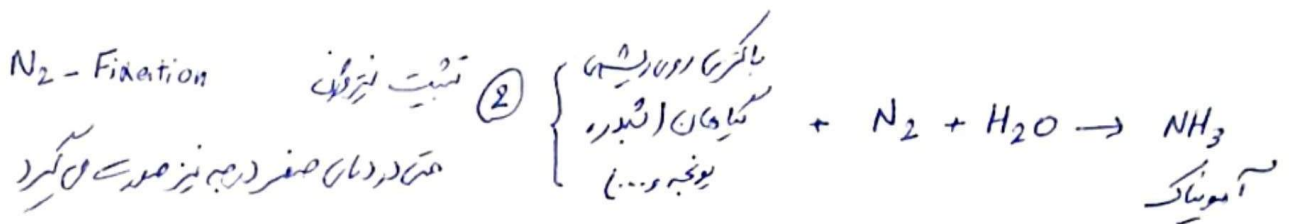 ② تثبیت نیتروژن N2 - Fixation
حتی در دمای صفر درجه نیز صورت می گیرد
{ باکتری روی ریشه‌ی
گیاهان (شبدر،
یونجه و ...)
+ N2 + H2O → NH3
آمونیاک